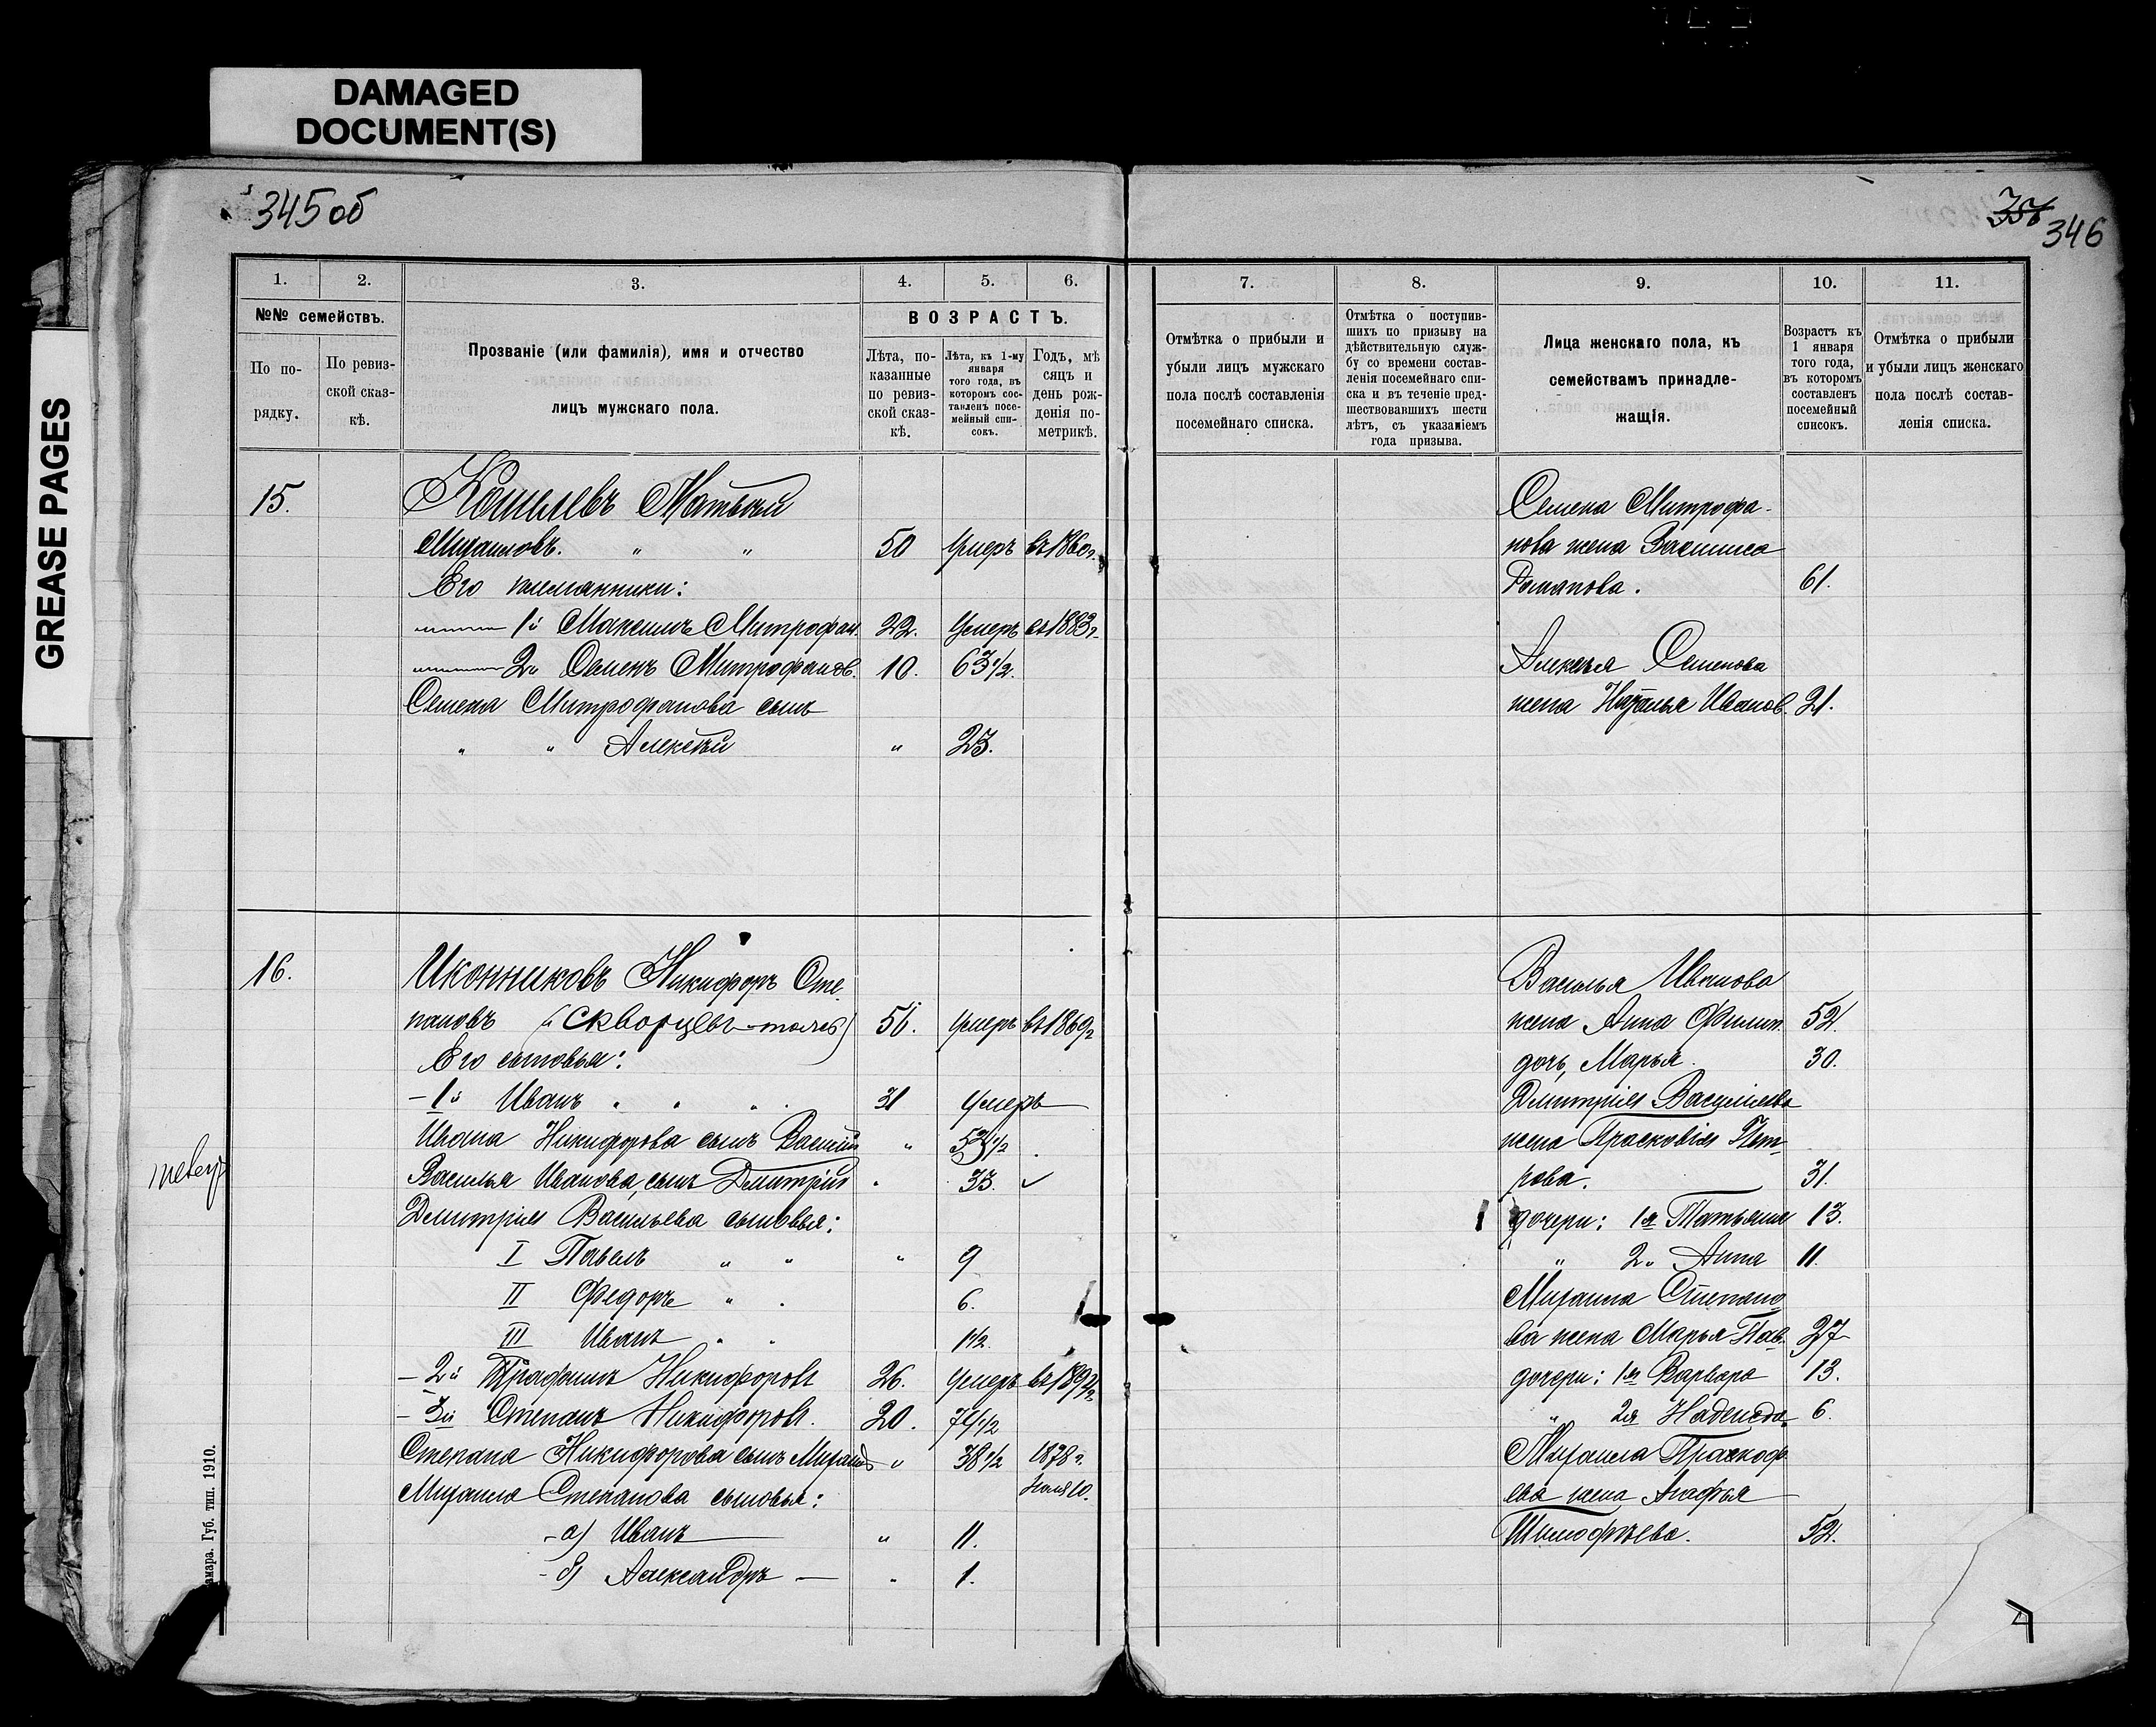 DAMAGED
DOCUMENT(S)
GREASE PAGES
345 об
346
1. 2. 3. 4. 5. 6.
№№ семействъ.
По по-
рядку.
По ревиз-
ской сказ-
кѣ.
Прозваніе (или фамилія), имя и отчество
лицъ мужскаго пола.
ВОЗРАСТЪ.
Лѣта, по-
казанные
по ревиз-
ской сказ-
кѣ.
Лѣта, къ 1-му
января
того года, въ
которомъ сос-
тавленъ посе-
мейный спи-
сокъ.
Годъ, мѣ
сяцъ и
день рож-
денія по-
метрикѣ.
15.
Матвѣй
Михаиловъ. " " 50 Умеръ въ 1860г.
Его племянники:
1й Максимъ Митрофан. 22. Умеръ въ 1883г.
2й Семенъ Митрофановъ. 10. 63 1/2.
Семена Митрофанова сынъ
" " Алексѣй " 23.
16.
Иконниковъ Никифоръ Сте-
пановъ (Скворцевъ-тоже) 56. Умеръ въ 1869г
Его сыновья:
-1й Иванъ " " " 31 Умеръ
Ивана Никифорова сынъ Василій " 53 1/2
Василья Иванова, сынъ Дмитрій " 33.
Дмитрія Васильева сыновья:
I Павелъ " " " 9
II Федоръ " " 6.
III Иванъ " " 1 1/2.
-2й Никифоровъ 26. Умеръ въ
-3й Степанъ Никифоровъ. 20. 74 1/2
Степана Никифорова сынъ Михаилъ " 38 1/2 1878г.
Михаила Степанова сыновья:
-а) Иванъ " 11.
-б) Александръ — " 1.
Губ. тип. 1910.
7. 8. 9. 10. 11.
Отмѣтка о прибыли и
убыли лицъ мужскаго
пола послѣ составленія
посемейнаго списка.
Отмѣтка о поступив-
шихъ по призыву на
дѣйствительную служ-
бу со времени состав-
ленія посемейнаго спи-
ска и въ теченіе пред-
шествовавшихъ шести
лѣтъ, съ указаніемъ
года призыва.
Лица женскаго пола, къ
семействамъ принадле-
жащія.
Возрастъ къ
1 января
того года,
въ которомъ
составленъ
посемейный
списокъ.
Отмѣтка о прибыли
и убыли лицъ женскаго
пола послѣ состав-
ленія списка.
Семена Митрофа-
нова жена Василиса
Романова. 61.
Алексѣя Семенова
жена Наталья Иванов. 21.
Василья Иванова
жена Анна Филип. 52.
дочь, Марья. 30.
Дмитрія Васильева
жена Прасковія Пет-
рова. 31.
дочери: 1я Татьяна 13.
" 2я Анна 11.
Михаила Степано-
ва жена Марья Пав. 27
дочери: 1я Варвара 13.
" 2я Надежда 6.
Михаила Прокоф-
ева жена Агафья
Тимофѣева. 52.